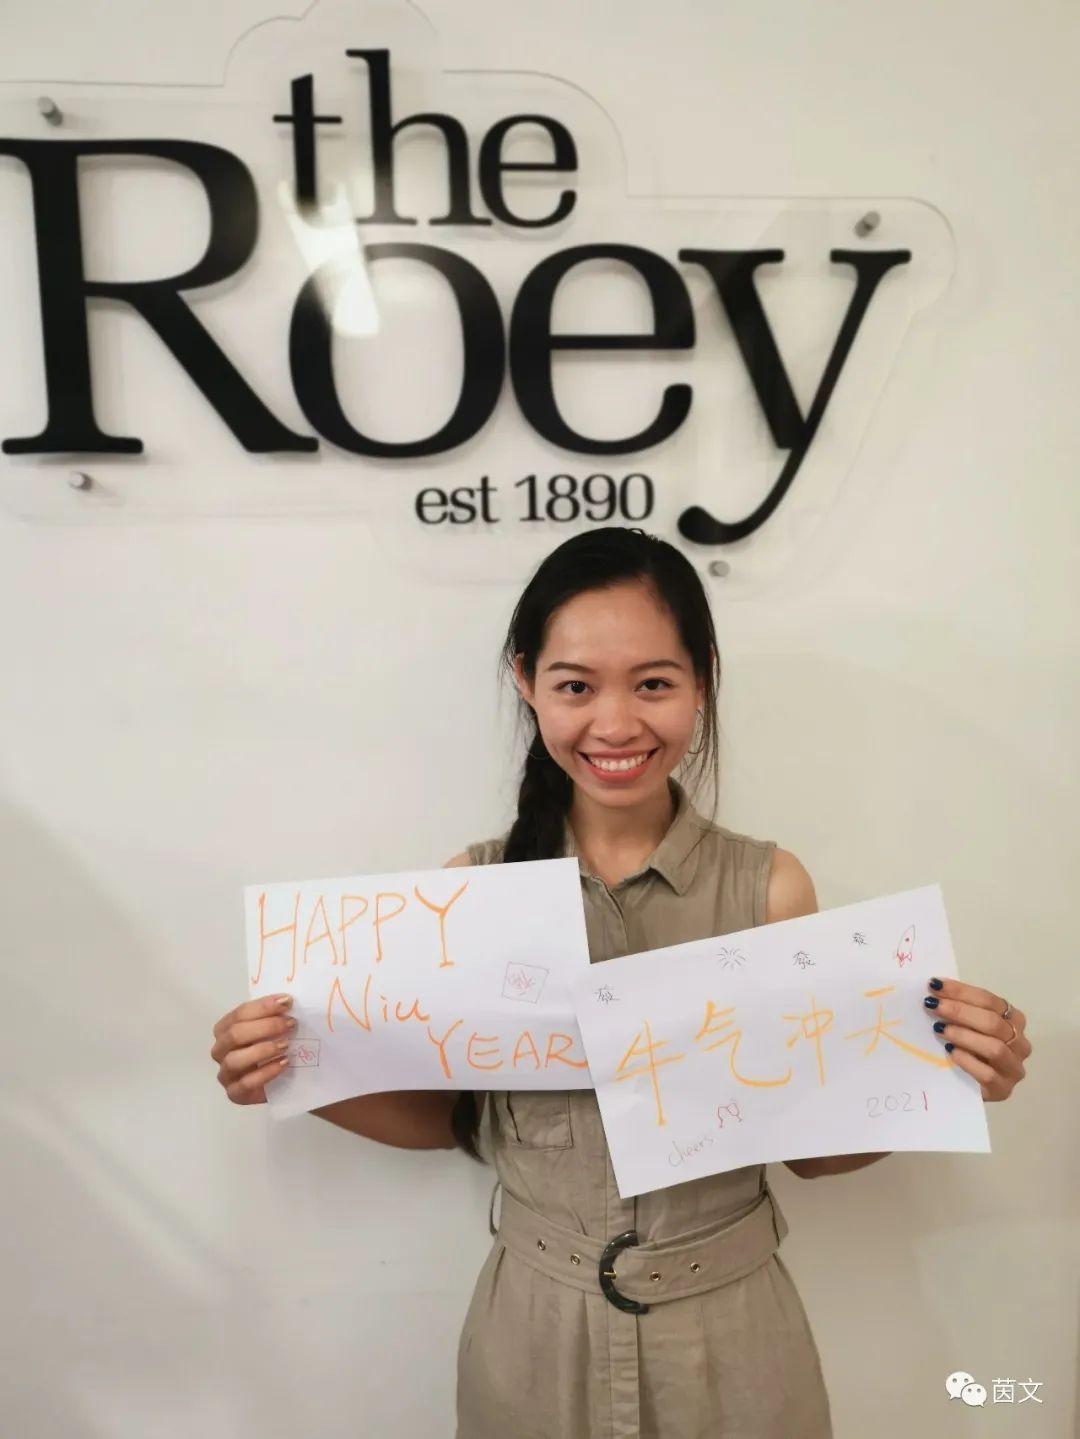 the
Roey
est 1890
HAPPY
Niu
YEAR
發
發
發
牛气冲天
cheers
2021
茵文